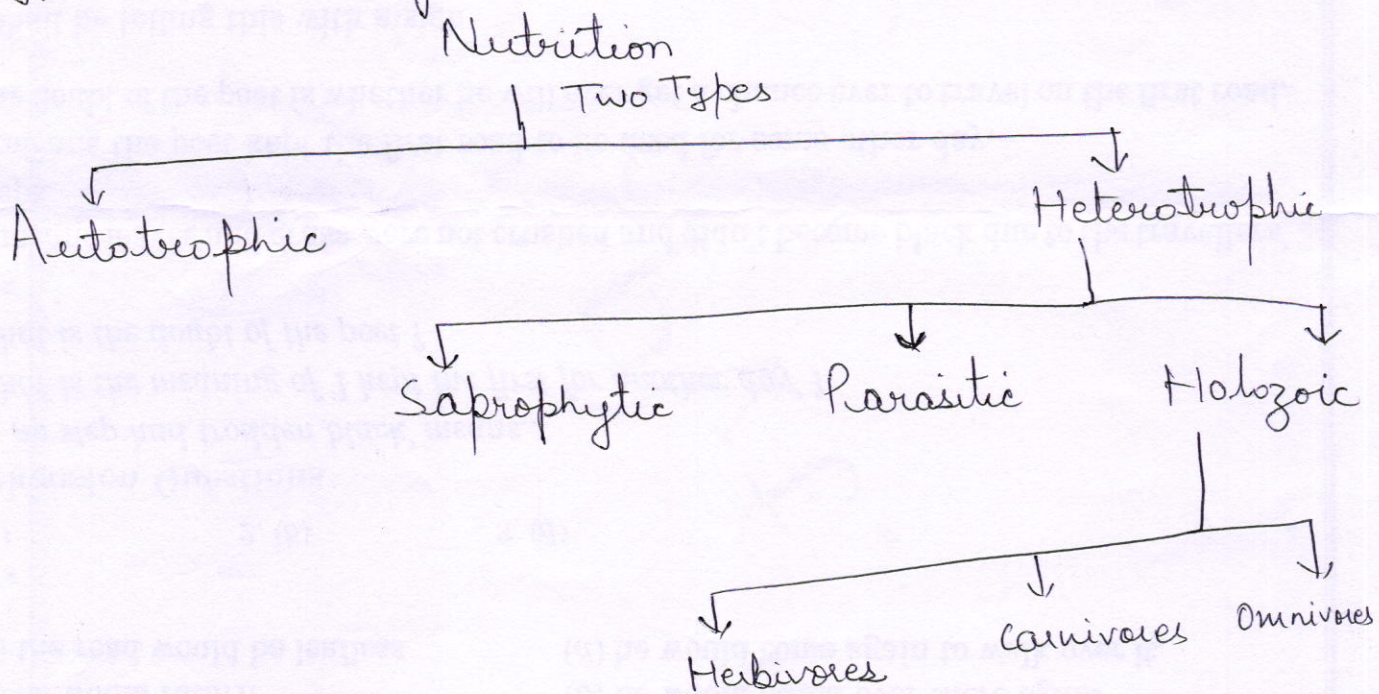 Nutrition
Two Types
Autotrophic
Heterotrophic
Saprophytic
Parasitic
Holozoic
Herbivores
Carnivores
Omnivores